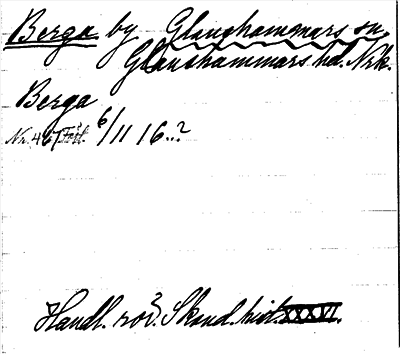 Berga by Glanshammars sn,
Glanshammars hd. Nrk.
Berga
Nr. 467 Fört. 6/11 16..?
Handl. rör. Skand. hist. XXXVI.